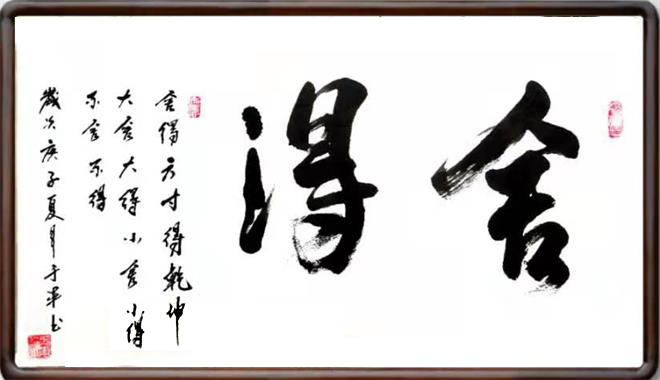 舍得
舍得方寸得乾坤
大舍大得小舍小得
不舍不得
歲次庚子夏月于平书